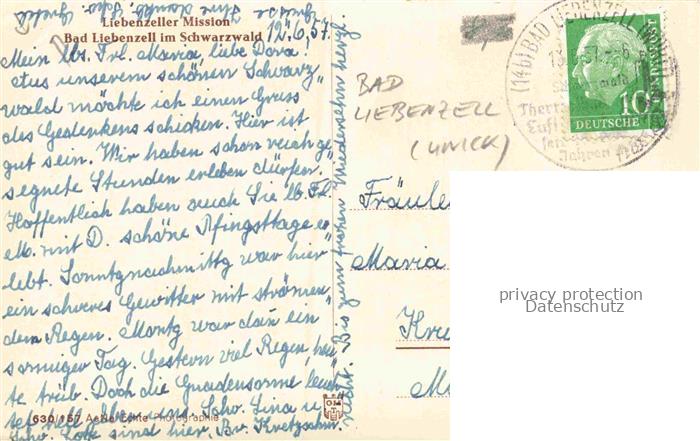 Liebenzeller Mission
Bad Liebenzell im Schwarzwald 12.6.57.
Mein lbs. Frl. Maria, liebe Dora!
Aus unserem schönen Schwarz"
wald möchte ich einen Gruss
des Gedenkens schicken. Hier ist
gut sein. Wir haben schon reich ge"
segnete Stunden erleben dürfen.
Hoffentlich haben auch Sie lb. Frl.
M. mit D. schöne Pfingsttage er"
lebt. Sonntgnachmittg war hier
ein schweres Gewitter mit strömen"
dem Regen. Montg war dan ein
sonniger Tag. Gestern viel Regen, heu"
te trüb. Doch die Gnadensonne leuch"
tet hell über uns. Schw. Lina u.
Schw. Lotte sind hier. Br. Kretzschm
nicht. Bis zum frohen Wiedersehn herzl.
Grüsse
630/157 Aero Echte Photographie
BAD
LIEBENZELL
(14b) BAD LIEBENZELL
13.6.57
Luft
Jahren
10
DEUTSCHE
BUNDESPOST
Fräule
Maria
privacy protection
Datenschutz